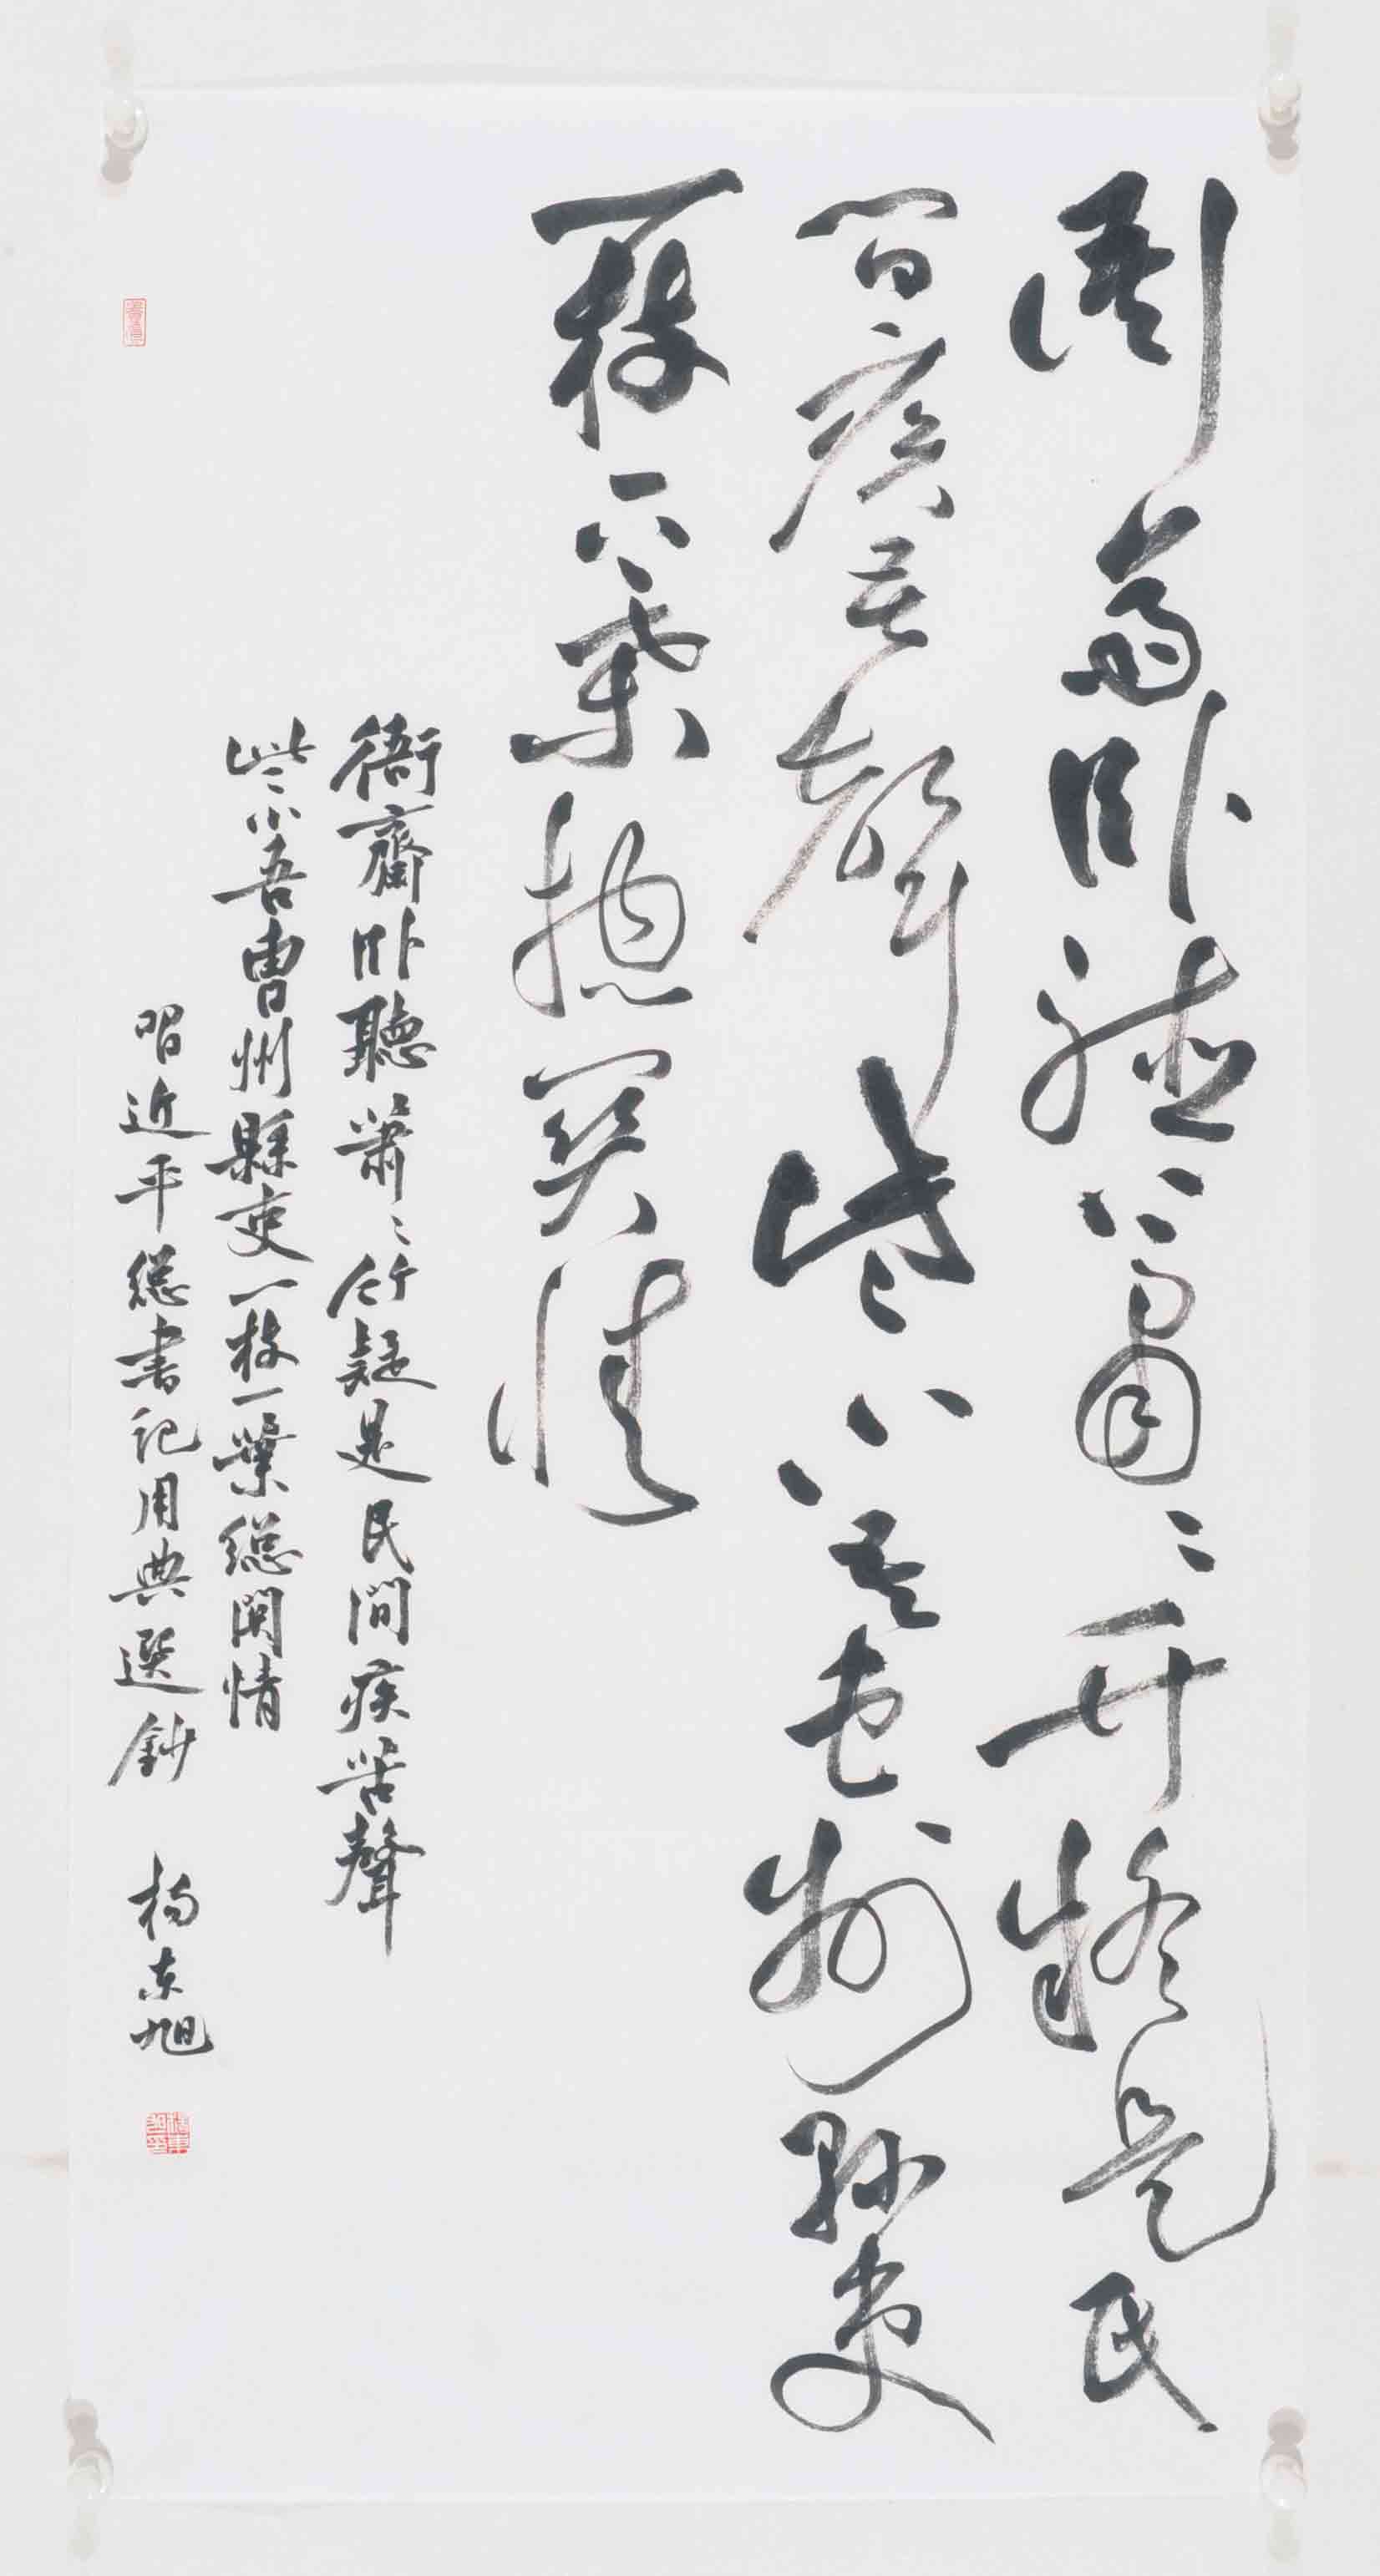 衙齋卧聽蕭〻竹疑是民
間疾苦聲些小吾曹州縣吏
一枝一葉總關情
衙齋卧聽蕭〻竹疑是民間疾苦聲
些小吾曹州縣吏一枝一葉總關情
習近平總書記用典選鈔 楊東旭